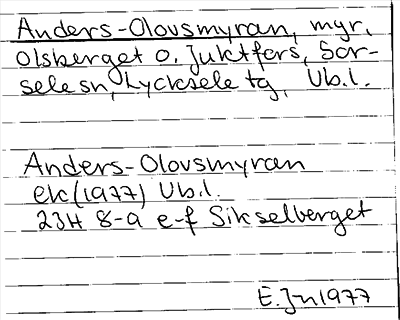 Anders-Olovsmyran, myr,
Olsberget o. Juktfors, Sor-
sele sn, Lycksele tg, Vb.l.
Anders-Olovsmyran
ek (1977) Vb.l.
23H 8-9 e-f Sikselberget
E.Jn 1977